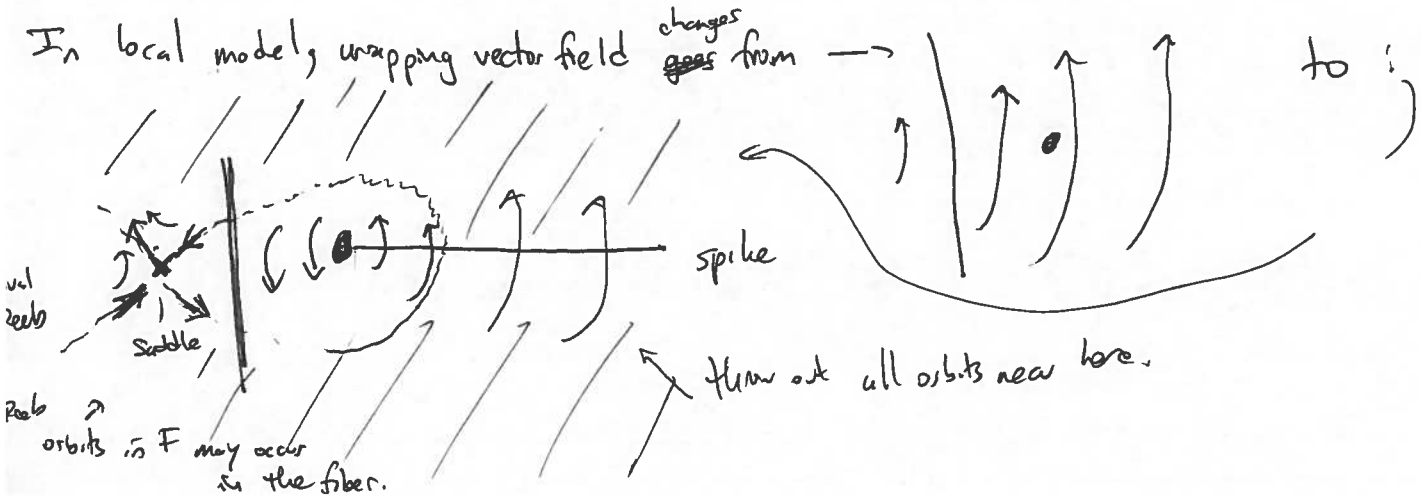 In local model, wrapping vector field changes from → to :
spike
saddle
throw out all orbits near here.
orbits in F may occur
in the fiber.